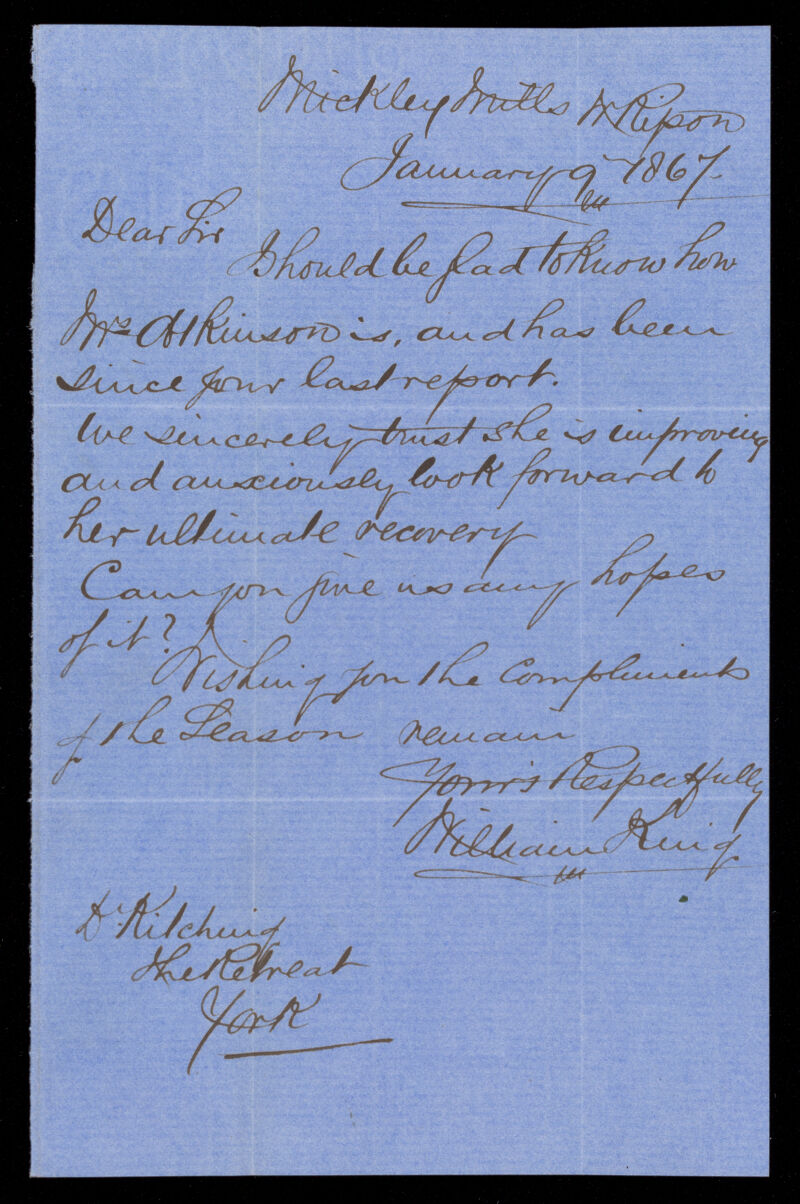 Mickley Mills Nr Ripon
January 9th 1867.
Dear Sir
I should be glad to know how
Mrs Atkinson is, and has been
since your last report.
We sincerely trust she is improving
and anxiously look forward to
her ultimate recovery
Can you give us any hopes
of it?
Wishing you the Compliments
of the Season remain
Your's Respectfully
William King
Dr Kitching
the Retreat
York